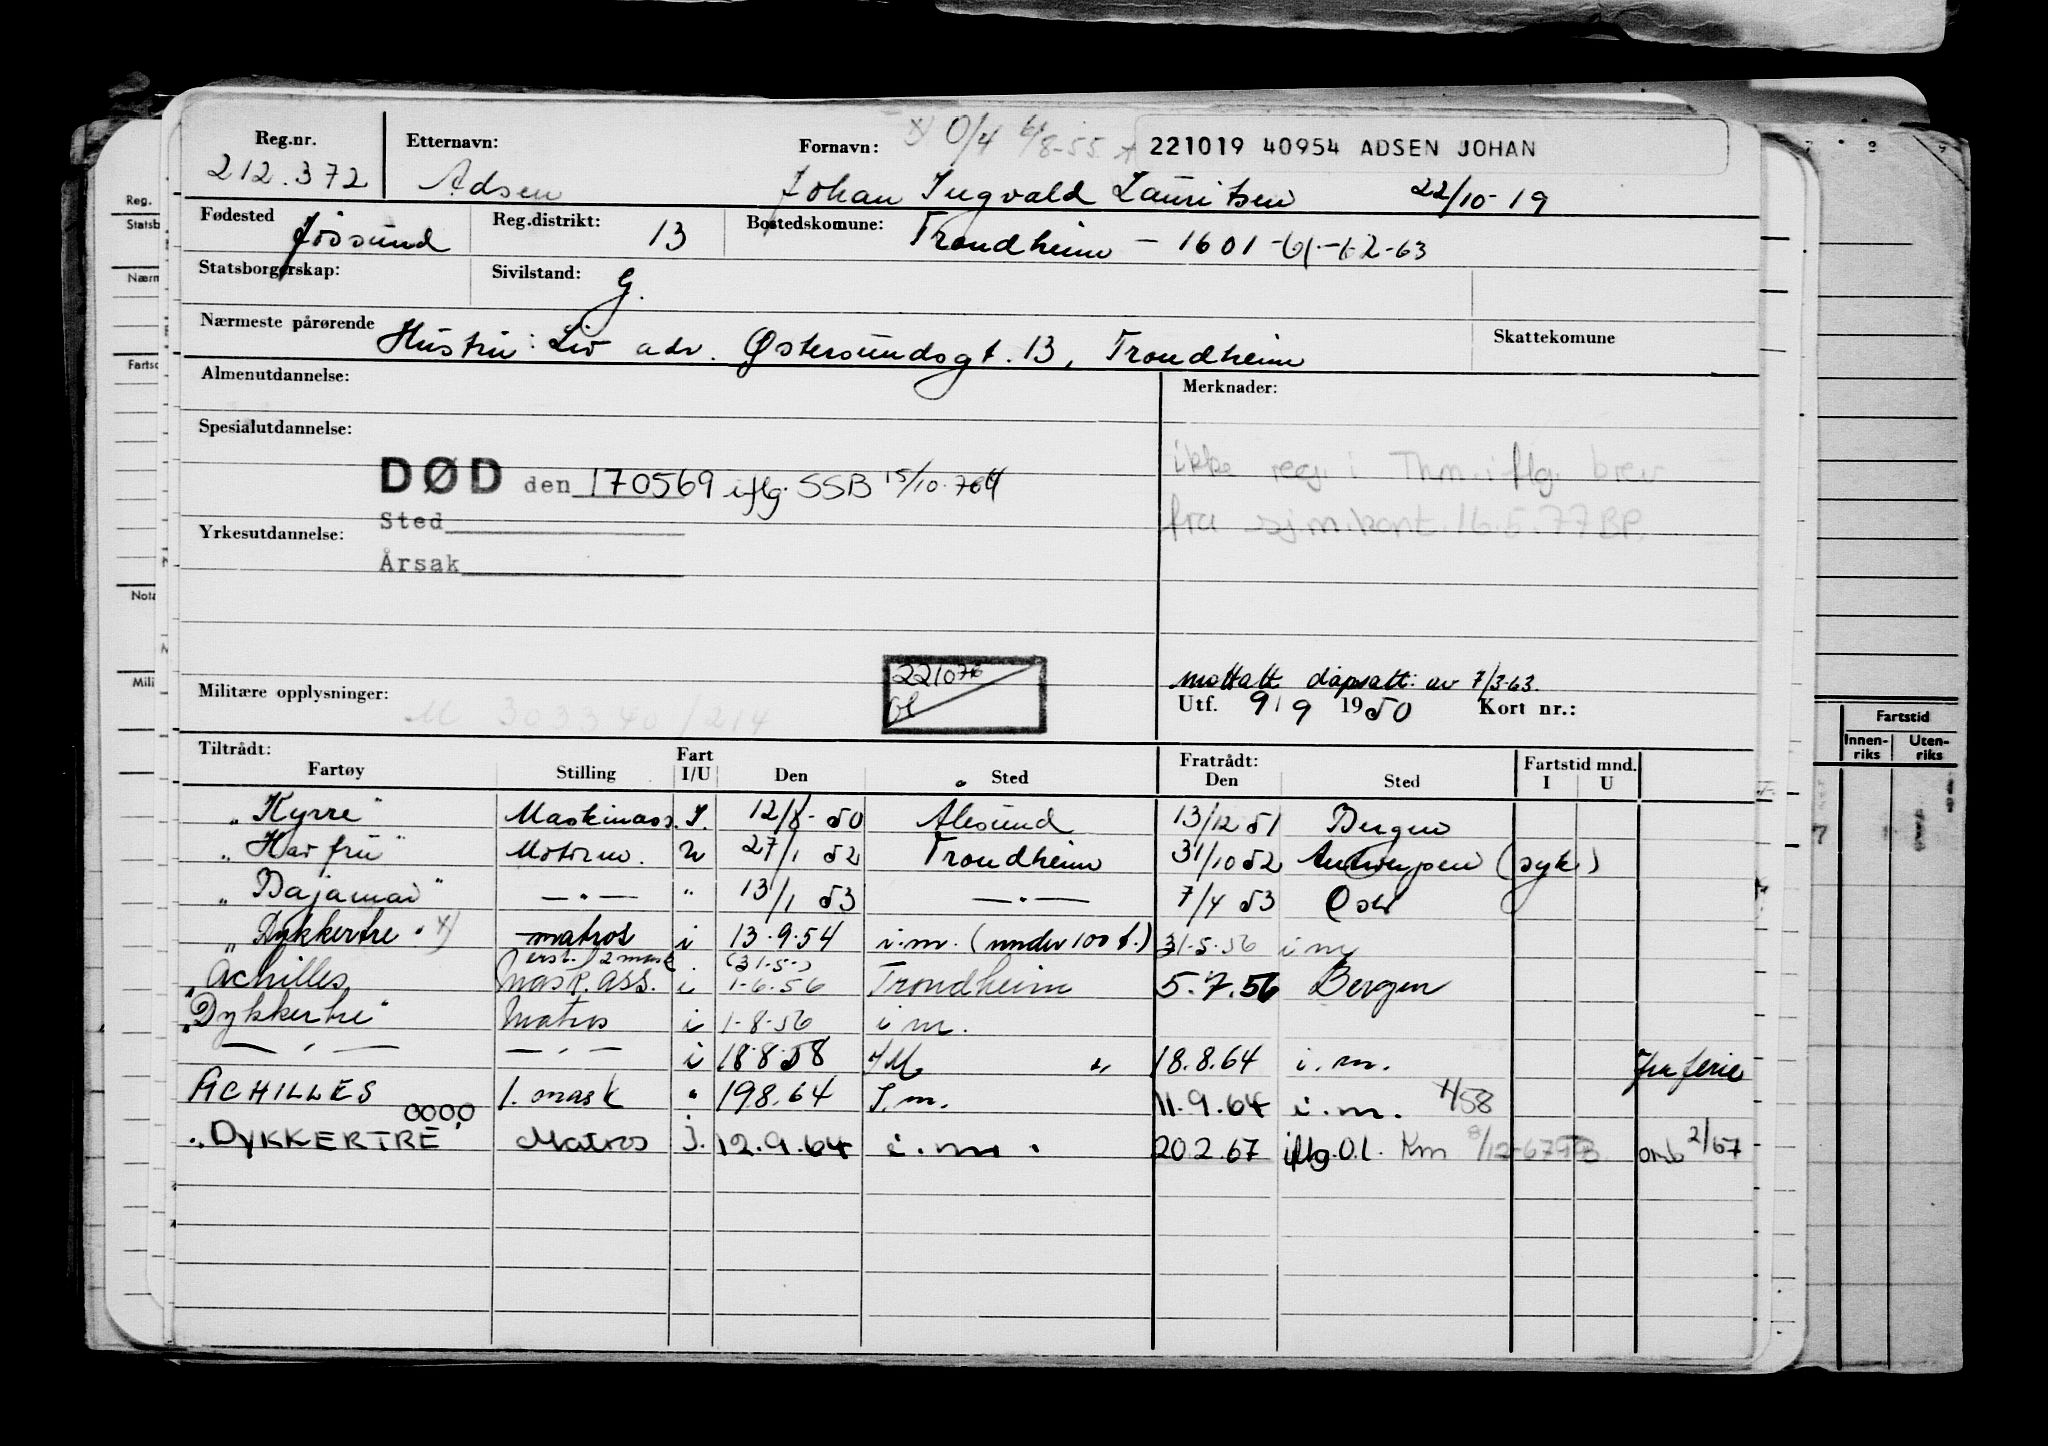 x) 0/4 4/8-55
221019 40954 ADSEN JOHAN
Reg.nr. Etternavn: Fornavn:
212.372 Adsen Johan Ingvald Lauritsen 22/10-19
Fødested Jössund Reg.distrikt: 13 Bostedskomune: Trondheim - 1601-61-62-63
Statsborgerskap: Sivilstand: G.
Nærmeste pårørende Hustru: Liv adr. Østersundsgt. 13, Trondheim Skattekomune
Almenutdannelse: Merknader:
Spesialutdannelse: ikke reg. i Thm. iflg. brev
DØD den 170569 iflg. SSB 15/10.76
Sted fra sjm.kont. 16.5.77 BP.
Yrkesutdannelse:
Årsak
221076
mottatt dåpsatt: av 7/3-63.
Militære opplysninger: M 303340/214 Utf. 9/9 1950 Kort nr.:
Tiltrådt: Fart Fratrådt: Fartstid mnd.
Fartøy Stilling I/U Den Sted Den Sted I U
"Kyrre" Maskinass. I. 12/8-50 Ålesund 13/12 51 Bergen
"Havfru" Motorm. U 27/1 52 Trondheim 31/10 52 Antwerpen (syk)
"Bajamar" — " — " 13/1 53 — " — 7/4 53 Oslo
"Dykkertre" x) matros i 13.9.54 i.m. (under 100 t.) 31.5.56 i m
erst. 2 mask (31.5.)
"Achilles Mask. ass. i 1-6.56 Trondheim 5.7.56 Bergen
"Dykkertre" Matros i 1-8-56 i m.
— " — — " — i 18.8.58 i M. " 18.8.64 i.m. fra ferie
ACHILLES 1. mask " 198.64 I.m. 11.9.64 i.m. 4/58
"DYKKERTRE" Matros i. 12.9.64 i.m. 20.2.67 iflg. O.l. Km 8/12-67 omb 2/67
Reg.
Nærm
Nota
Mili
Fartstid
Innen- Uten-
riks riks
7